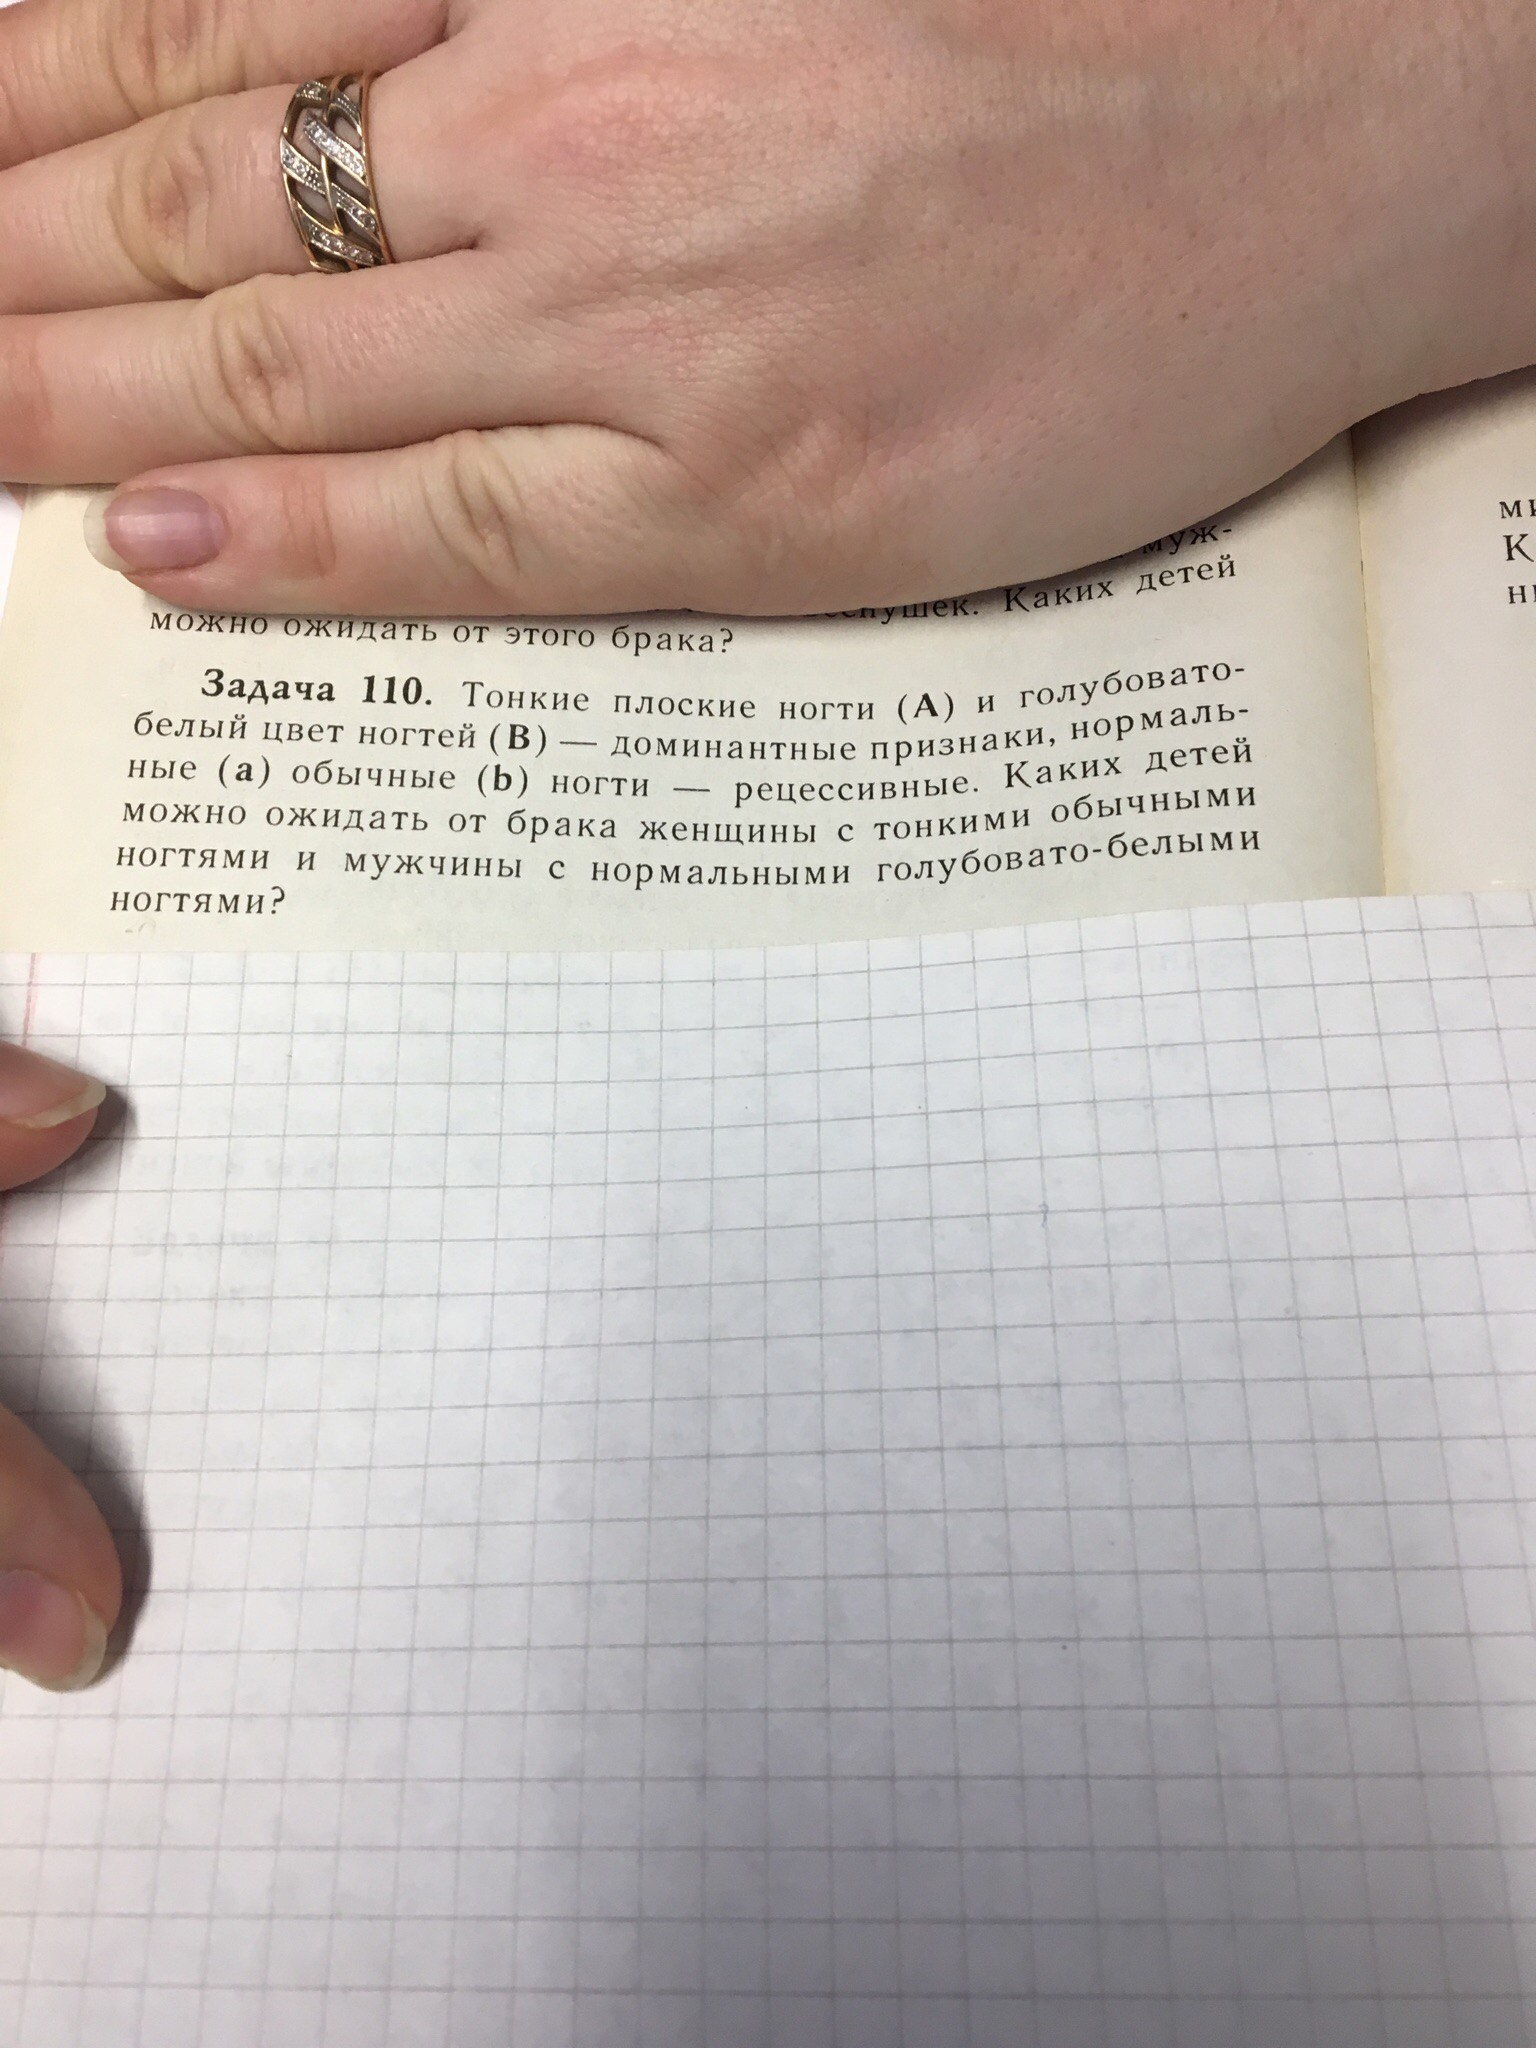 муж-
веснушек. Каких детей
можно ожидать от этого брака?
Задача 110. Тонкие плоские ногти (А) и голубовато-
белый цвет ногтей (В) — доминантные признаки, нормаль-
ные (а) обычные (b) ногти — рецессивные. Каких детей
можно ожидать от брака женщины с тонкими обычными
ногтями и мужчины с нормальными голубовато-белыми
ногтями?
К